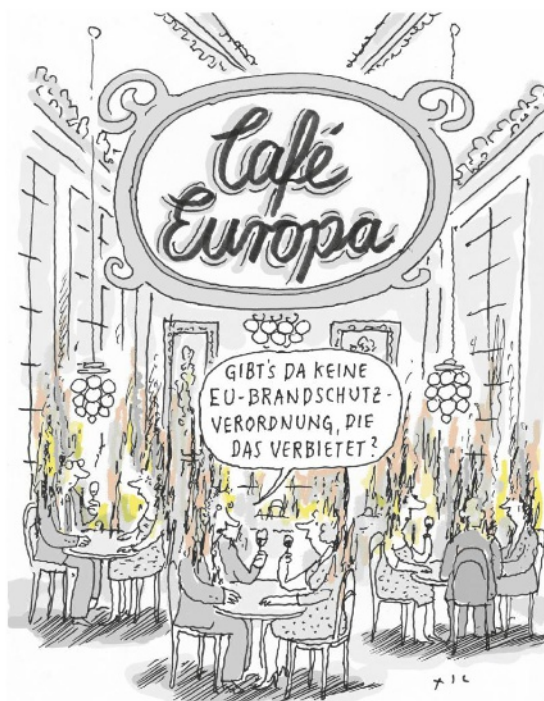 Café
Europa
GIBT'S DA KEINE
EU-BRANDSCHUTZ-
VERORDNUNG, DIE
DAS VERBIETET?